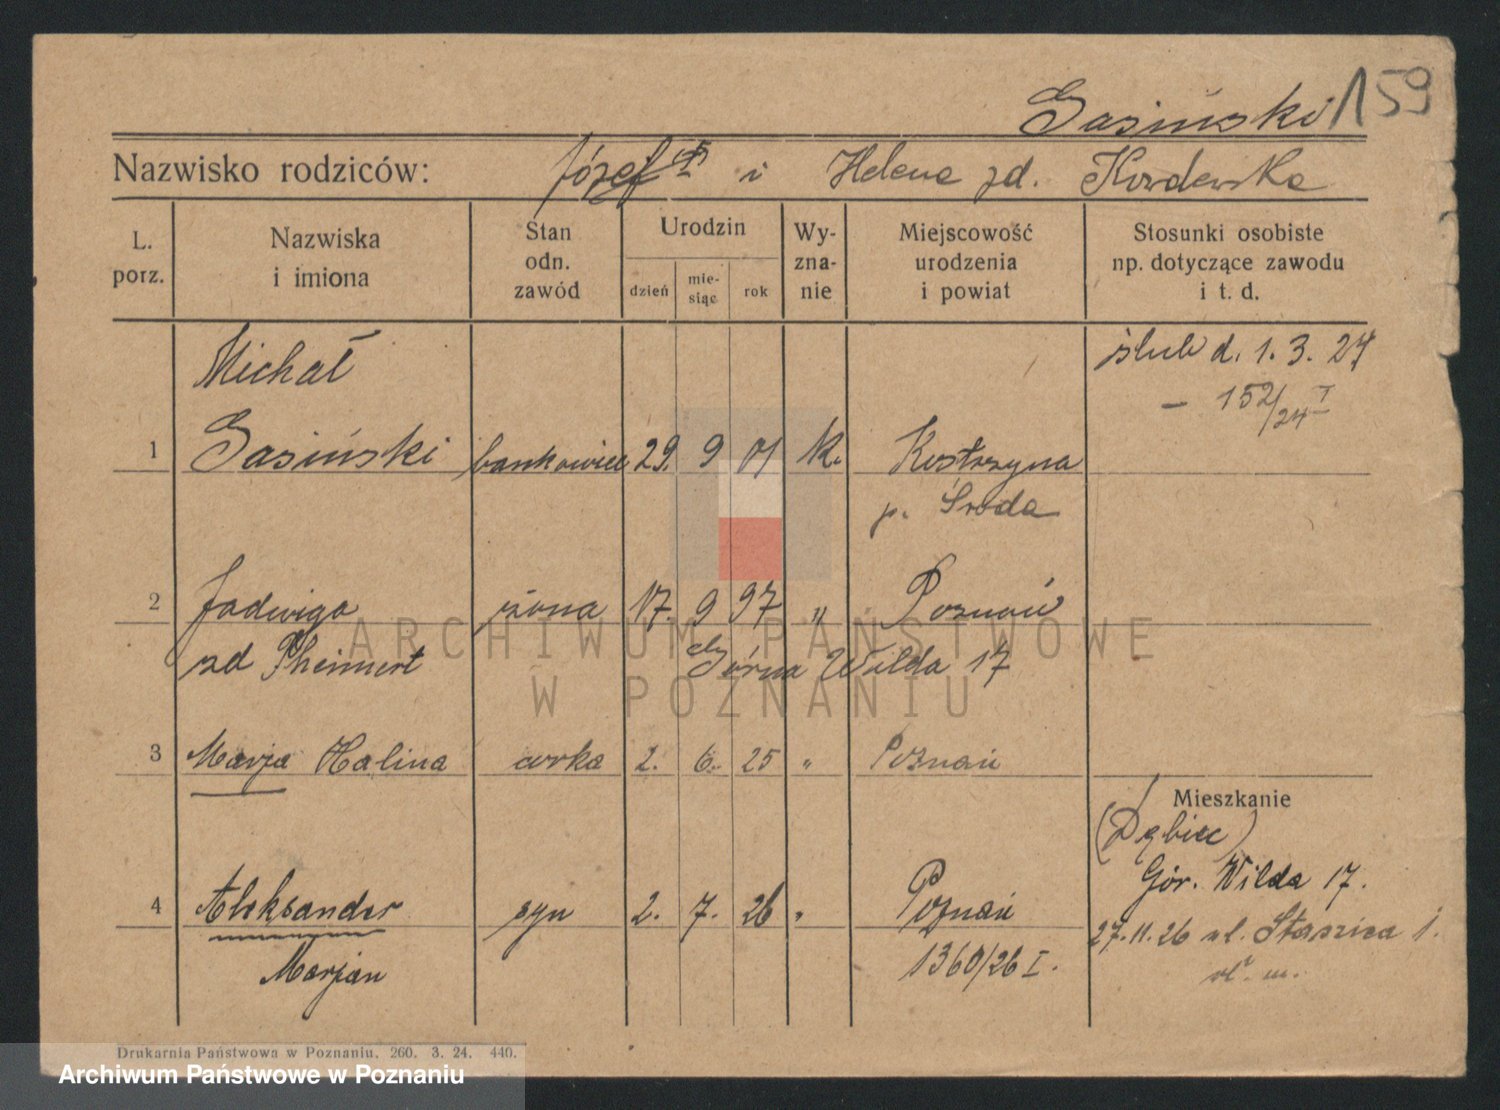 Gasiński 159
Nazwisko rodziców: Józef i Helena zd. Kordewska
L. porz.
Nazwiska i imiona
Stan odn. zawód
Urodzin
dzień
mie-siąc
rok
Wy-zna-nie
Miejscowość urodzenia i powiat
Stosunki osobiste np. dotyczące zawodu i t. d.
Michał
ślub d. 1. 3. 24
- 152/24 I
1 Gasiński bankowiec 29. 9 01 k. Kostrzyna
p. Środa
2 Jadwiga żona 17. 9 97 " Poznań
zd Theinert Górna Wilda 17
3 Marja Halina córka 2. 6. 25 " Poznań
Mieszkanie
(Dębiec)
Gór. Wilda 17.
4 Aleksander syn 2. 7. 26 " Poznań
27.11.26 ul. Staszica 1.
Marjan 1360/26 I.
Drukarnia Państwowa w Poznaniu. 260. 3. 24. 440.
ARCHIWUM PAŃSTWOWE
W POZNANIU
Archiwum Państwowe w Poznaniu